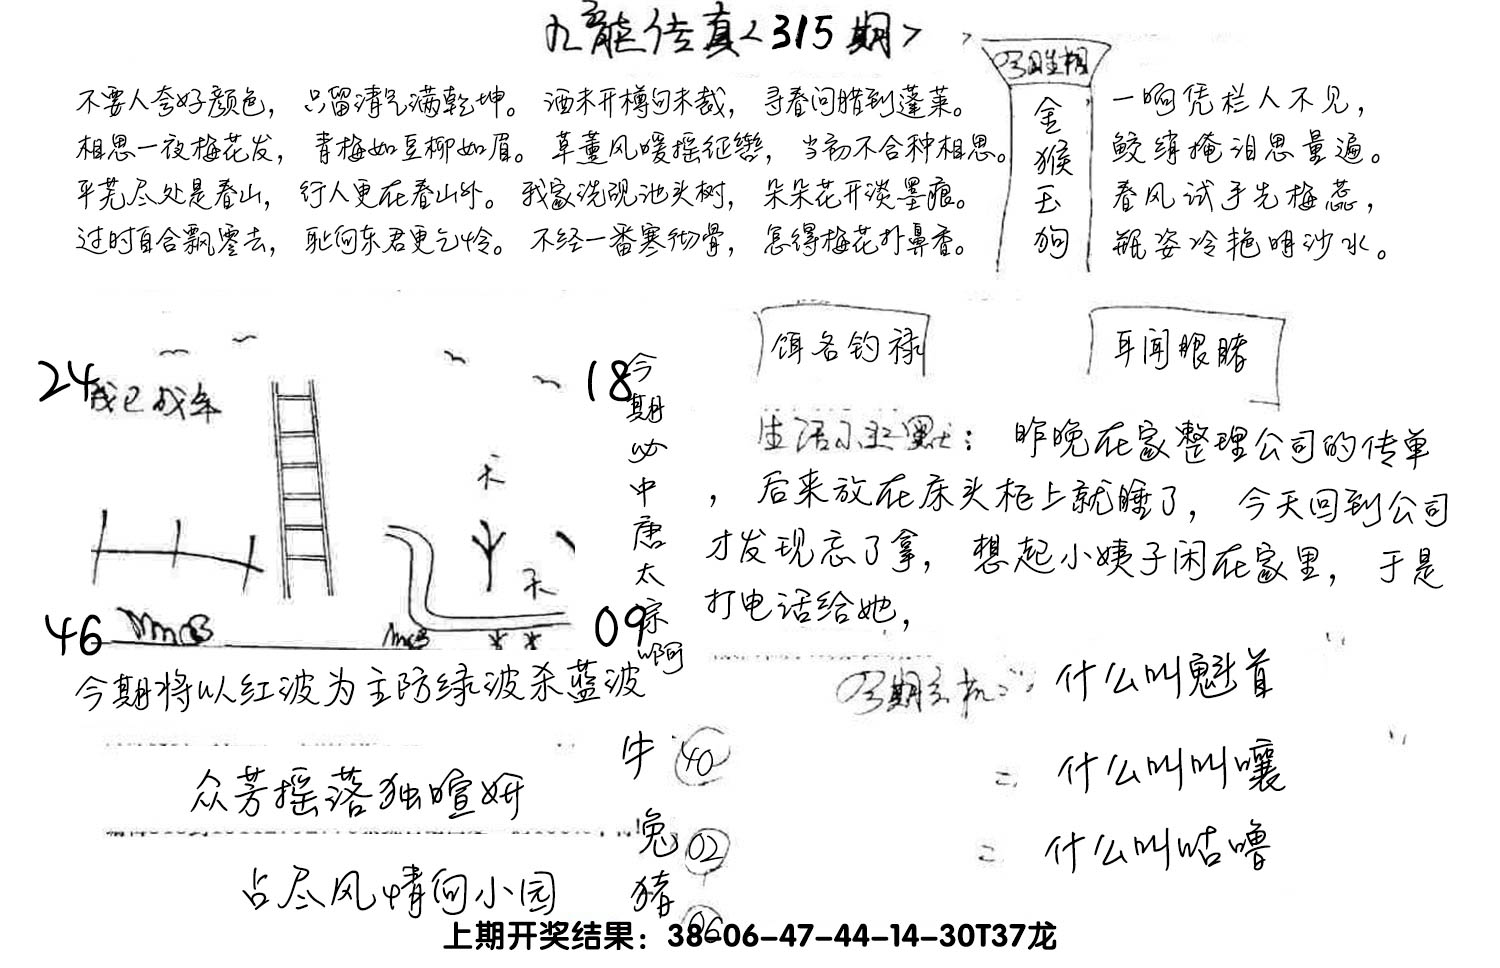 九龙传真<315期>
不要人夸好颜色，只留清气满乾坤。酒未开樽句未裁，寻春问腊到蓬莱。
相思一夜梅花发，青梅如豆柳如眉。草薰风暖摇征辔，当初不合种相思。
平芜尽处是春山，行人更在春山外。我家洗砚池头树，朵朵花开淡墨痕。
过时自合飘零去，耻向东君更乞怜。不经一番寒彻骨，怎得梅花扑鼻香。
今日生相
金猴玉狗
一晌凭栏人不见，
鲛绡掩泪思量遍。
春风试手先梅蕊，
瓶姿冷艳明沙水。
饵名钓禄
耳闻眼睹
24
18
46
09
天
天
今期必中唐太宗啊
生活小幽默：昨晚在家整理公司的传单
，后来放在床头柜上就睡了，今天回到公司
才发现忘了拿，想起小姨子闲在家里，于是
打电话给她，
今期将以红波为主防绿波杀蓝波
今期玄机：什么叫魁首
什么叫叫嚷
什么叫咕噜
众芳摇落独暄妍
占尽风情向小园
牛 40
兔 02
猪 06
上期开奖结果：38-06-47-44-14-30T37龙